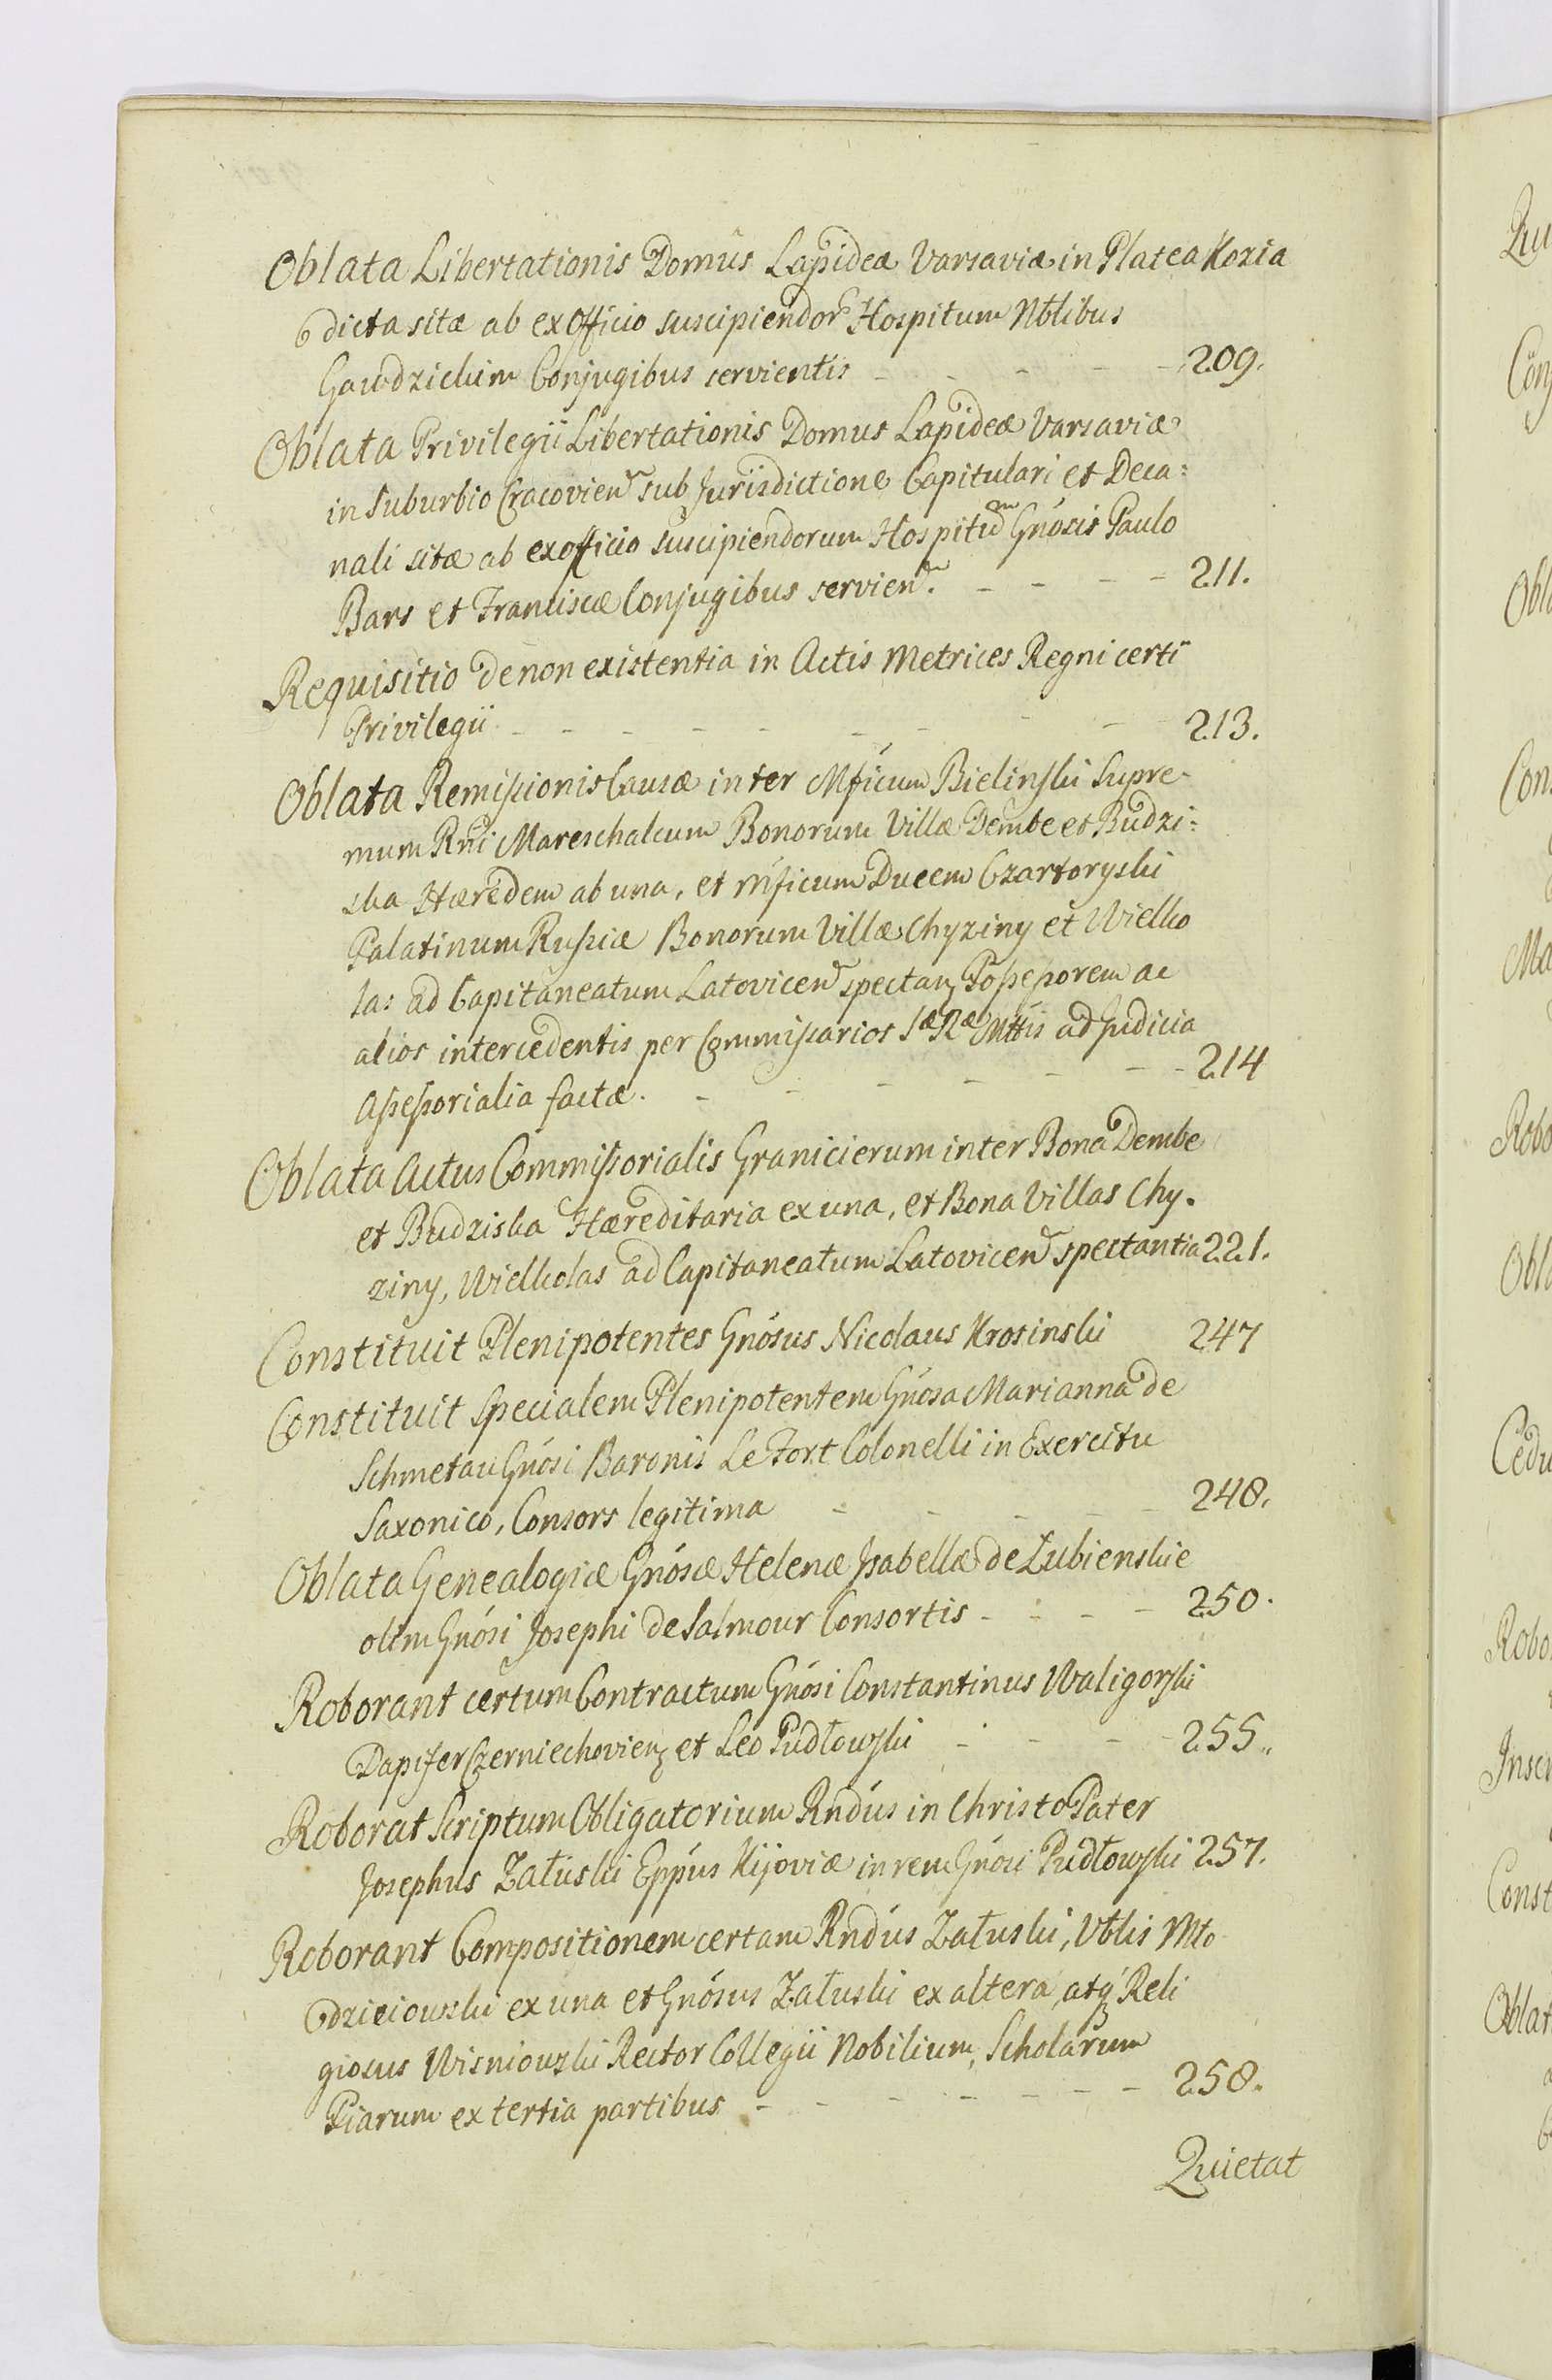 Oblata Libertationis Domûs Lapideæ Varsaviæ in Platea Kozia
dicta sitæ ab exOfficio suscipiendor Hospitum Nblibus
Gawdzickim Conjugibus servientis - - - - 209.
Oblata Privilegii Libertationis Domus Lapideæ Varsaviæ
in Suburbio Cracovien sub Jurisdictione Capitulari et Deca:
nali sitæ ab exofficio suscipiendorum Hospitum Gnósis Paulo
Bars et Franciscæ Conjugibus servien. - - - - 211.
Requisitio de non existentia in Actis Metrices Regni certi
Privilegii - - - - - - - - 213.
Oblata Remissionis Causæ inter Mficum Bielinski Supre-
mum Rni Mareschalcum Bonorum Villæ Dembe et Budzi:
ska Hæredem ab una, et mficum Ducem Czartoryski
Palatinum Russiæ Bonorum Villæ Chyziny et Wielko
las ad Capitaneatum Latovicen spectan Possessorem ac
alios intercedentis per Commissarios Sæ Ræ Mttis ad Judicia
Assessorialia factæ. - - - - - - 214
Oblata Actus Commissorialis Granicierum inter Bona Dembe
et Budziska Hæreditaria ex una, et Bona Villas Chy.
ziny, Wielkolas ad Capitaneatum Latovicen spectantia 221.
Constituit Plenipotentes Gnósus Nicolaus Krosinski 247
Constituit Specialem Plenipotentem Gnosa Marianna de
Schmetau Gnósi Baronis Le Fort Colonelli in Exercitu
Saxonico, Consors legitima - - - - 248.
Oblata Genealogiæ Gnósæ Helenæ Isabellæ de Łubienskie
olim Gnósi Josephi de Salmour Consortis - - - - 250.
Roborant certum Contractum Gnósi Constantinus Waligorski
Dapifer Czerniechovien et Leo Pudłowski - - - - 255.
Roborat Scriptum Obligatorium Rndús in Christo Pater
Josephus Załuski Eppús Kijoviæ in rem Gnósi Pudłowski 257.
Roborant Compositionem certam Rndús Załuski, Vblis Mło
dzieiowski ex una et Gnósus Załuski ex altera, atq Reli
giosus Wisniowski Rector Collegii Nobilium, Scholarum
Piarum ex tertia partibus - - - - - - 258.
Quietat